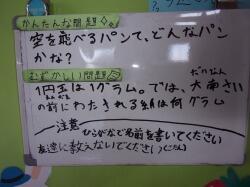 かんたんな問題
空を飛べるパンて、どんなパン
かな?
むずかしい問題
1円玉は1グラム。では、大南さい
の前にわたされる紙は何グラム
注意
ひらがなで名前を書いてください
友達に教えないでください